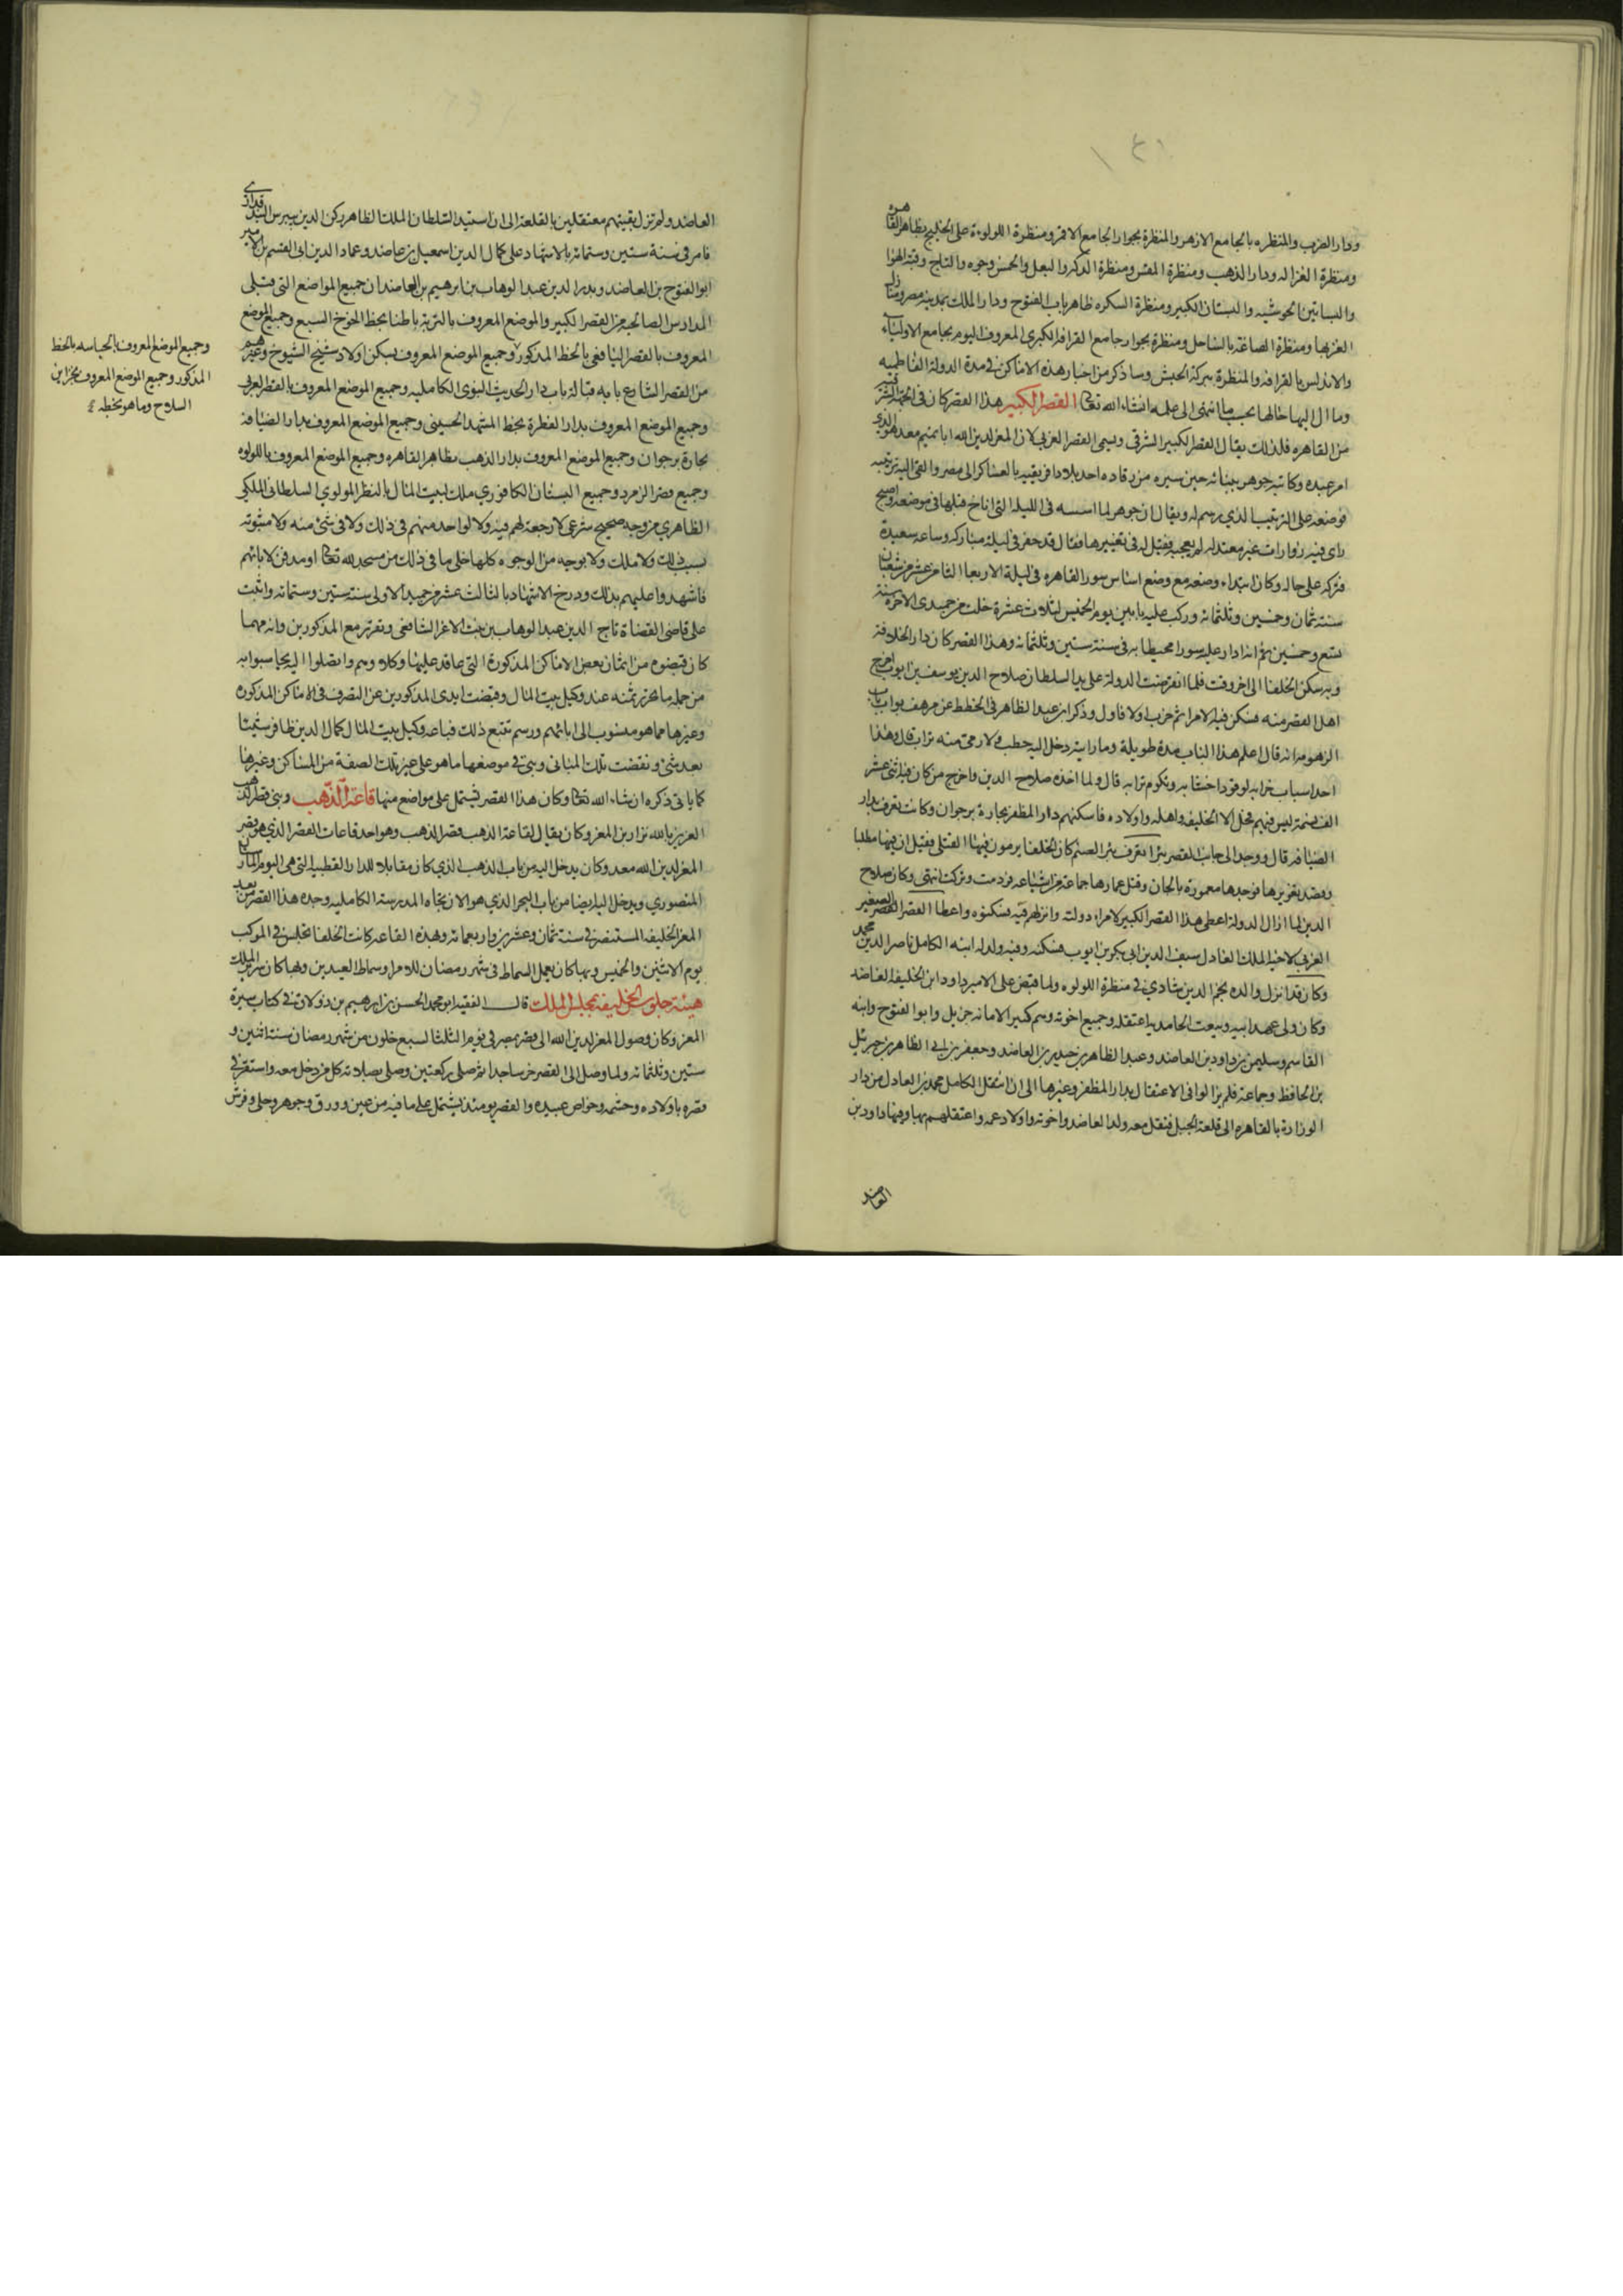 ودار الضرب والمنظره بالجامع الازهر والمنظرة بجوار الجامع الاقمر ومنظرة اللولوة على الخليج بظاهر القاهره
ومنظرة الغزاله ودار الذهب ومنظرة المقس ومنظرة الدكه والبعل والخمس وجوه والتاج وقبة الهوا
والبساتين الجيوشيه والبستان الكبير ومنظرة السكره ظاهر باب الفتوح ودار الملك بمدينة مصر ومنازل
العز بها ومنظرة الصناعة بالساحل ومنظرة بجوار جامع القرافة الكبرى المعروف اليوم بجامع الاولياء
والاندلس بالقرافه والمنظرة ببركة الحبش وساذكر من اخبار هذه الاماكن في مدة الدولة الفاطميه
وما ال اليه حالها بحسب ما انتهى الى علمه انشاء الله تعالى القصر الكبير هذا القصر كان في الجهة الشرقيه
من القاهره فلذلك يقال القصر الكبير الشرقي ويسمى القصر المعزي لان المعز لدين الله ابا تميم معد هو الذي
امر عبده وكاتبه جوهر ببنائه حين سيره من رقاده احد بلاد افريقيه بالعساكر الى مصر والقى اليه ترتيبه
فوضعه على الترتيب الذي رسم له ويقال ان جوهر لما اسسه في الليلة التي اناخ قبلها في موضعه واصبح
راى فيه زوارات غير معتدله لم يعجبه فقيل له في تغييرها فقال قد حفر في ليلة مباركه وساعة سعيدة
فتركه على حاله وكان ابتداء وضعه مع وضع اساس سور القاهره في ليلة الاربعا الثامن عشر من شعبان
سنة ثمان وخمسين وثلثمائة وركب عليه بابين يوم الخميس لثلاث عشرة خلت من جمادى الاخره سنة
تسع وخمسين ثم انه ادار عليه سورا محيطا به في سنة ستين وثلثمائة وهذا القصر كان دار الخلافة
وبه سكن الخلفا الى اخر وقت فلما انقرضت الدولة على يد السلطان صلاح الدين يوسف بن ايوب اخرج
اهل القصر منه وسكن فيه الامرا ثم خرب اولا فاول وذكر ابن عبد الظاهر في الخطط عن مرهف بواب باب
الزهومة انه قال اعلم هذا الباب مدة طويلة وما رايته دخل اليه حطب ولا رمي منه تراب قال وهذا
احد اسباب خرابه لوقود اخشابه وتكوم ترابه قال ولما اخذه صلاح الدين واخرج من كان به اثنى عشر
الف نسمة ليس فيهم فحل الا الخليفه واهله واولاده فاسكنهم دار المظفر بحارة برجوان وكانت تعرف بدار
الضيافه قال ووجد الى جانب القصر بئرا تعرف ببئر الصنم كان الخلفا يرمون فيها القتلى فقيل ان فيها مطلبا
وقصد تغويرها فوجدها معمورة بالجان وقتل عمارها جماعة من اشياعه فردمت وتركت انتهى وكان صلاح
الدين لما ازال الدولة اعطى هذا القصر الكبير لامراء دولته وانزلهم فيه فسكنوه واعطا القصر الصغير
الغربي لاخيه الملك العادل سيف الدين ابي بكر بن ايوب فسكنه وفيه ولد له ابنه الكامل ناصر الدين محمد
وكان قد انزل والده نجم الدين شادي في منظرة اللولوه ولما قبض على الامير داود ابن الخليفه العاضد
وكان ولى عهد ابيه وينعت الحامد لله اعتقله وجميع اخوته وهم كثير الامانه جزيل وابو الفتوح وابنه
القاسم وسليمن بن داود بن العاضد وعبد الظاهر بن حيدر بن العاضد وجعفر بن ابي الظاهر بن جبريل
بن الحافظ وجماعة فلم يزالوا في الاعتقال بدار المظفر وغيرها الى ان انتقل الكامل محمد بن العادل من دار
الوزارة بالقاهره الى قلعة الجبل فنقل معه ولد العاضد واخوته واولاد عمه واعتقلهم بها وفيها داود بن
العاضد
العاضد ولم تزل بقيتهم معتقلين بالقلعة الى ان استبد السلطان الملك الظاهر ركن الدين بيبرس البندقداري
فامر في سنة ستين وستمائة بالاشهاد على كمال الدين اسمعيل بن عاضد وعماد الدين ابى القسم بن الامير
ابو الفتوح بن العاضد وبدر الدين عبد الوهاب بن ابرهيم بن العاضد ان جميع المواضع التي قبلى
المدارس الصالحيه من القصر الكبير والموضع المعروف بالتربة باطنا بخط الخوخ السبع وجميع الموضع
المعروف بالقصر اليافعى بالخط المذكور وجميع الموضع المعروف بسكن اولاد شيخ الشيوخ وغيرهم
من القصر الشارع بابه قبالة باب دار الحديث النبوى الكامليه وجميع الموضع المعروف بالقصر الغربي
وجميع الموضع المعروف بدار الفطرة بخط المشهد الحسينى وجميع الموضع المعروف بدار الضيافة
بحارة برجوان وجميع الموضع المعروف بدار الذهب بظاهر القاهره وجميع الموضع المعروف باللولوه
وجميع قصر الزمرد وجميع البستان الكافوري ملك لبيت المال بالنظر المولوي السلطانى الملكي
الظاهري من وجه صحيح شرعى لا رجعة لهم فيه ولا لواحد منهم في ذلك ولا في شئ منه ولا مثبوته
بسبب ذلك ولا ملك ولا بوجه من الوجوه كلها خلى ما في ذلك من مسجد لله تعالى او مدفن لابائهم
فاشهدوا عليهم بذلك وورخ الاشهاد بالثالث عشر من جمادى الاولى سنة ستين وستمائة واثبت
على قاضى القضاة تاج الدين عبد الوهاب بن بنت الاعز الشافعى وتقرر مع المذكورين وانه مهما
كان قبضوه من اثمان بعض الاماكن المذكورة التي عاقد عليها وكلاوهم واتصلوا اليه يحاسبوا به
من جملة ما يحرز ثمنه عند وكيل بيت المال وقبضت ايدى المذكورين عن التصرف في الاماكن المذكوره
وغيرها مما هو منسوب الى ابائهم ورسم ببيع ذلك فباعه وكيل بيت المال كمال الدين ظافر شيئا
بعد شئ ونقضت تلك المبانى وبني في موضعها ما هو على غير تلك الصفة من المساكن وغيرها
كما ياتى ذكره ان شاء الله تعالى وكان هذا القصر يشتمل على مواضع منها قاعة الذهب وبنى قصر الذهب
العزيز بالله نزار بن المعز وكان يقال لقاعة الذهب قصر الذهب وهو احد قاعات القصر الذي هو قصر
المعز لدين الله معد وكان يدخل اليه من باب الذهب الذي كان مقابلا للدار القطبيه التي هي اليوم المارستان
المنصوري ويدخل اليه ايضا من باب البحر الذي هو الان تجاه المدرسة الكامليه وجدد هذا القصر من بعد
المعز الخليفه المستنصر في سنة ثمان وعشرين واربعمائة وبهذه القاعه كانت الخلفا تجلس في الموكب
يوم الاثنين والخميس وبها كان يعمل السماط في شهر رمضان للامرا وسماط العيدين وبها كان سرير الملك
هيئة جلوس الخليفة بمجلس الملك قال الفقيه ابو محمد الحسن بن ابرهيم بن زولاق في كتاب سيرة
المعز وكان وصول المعز لدين الله الى قصره بمصر في يوم الثلثا لسبع خلون من شهر رمضان سنة اثنين و
ستين وثلثمائة ولما وصل الى القصر خر ساجدا ثم صلى ركعتين وصلى بصلاته كل من دخل معه واستقر في
قصره باولاده وحشمه وخواص عبيده والقصر يومئذ يشتمل على ما فيه من عين وورق وجوهر وحلى وفرش
وجميع الموضع المعروف بالجباسه بالخط
المذكور وجميع الموضع المعروف بخزاين
السلاح وما هو بخطه